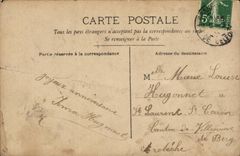 CARTE POSTALE
Tous les pays étrangers n'acceptent pas la correspondance au verso
Se renseigner à la Poste
Partie réservée à la correspondance
Adresse du destinataire
Melle Marie Louise
Hugonnet
St Laurent St
Canton de Villeneuve
de Berg
Ardèche
Joyeux anniversaire
Hugonnet
5